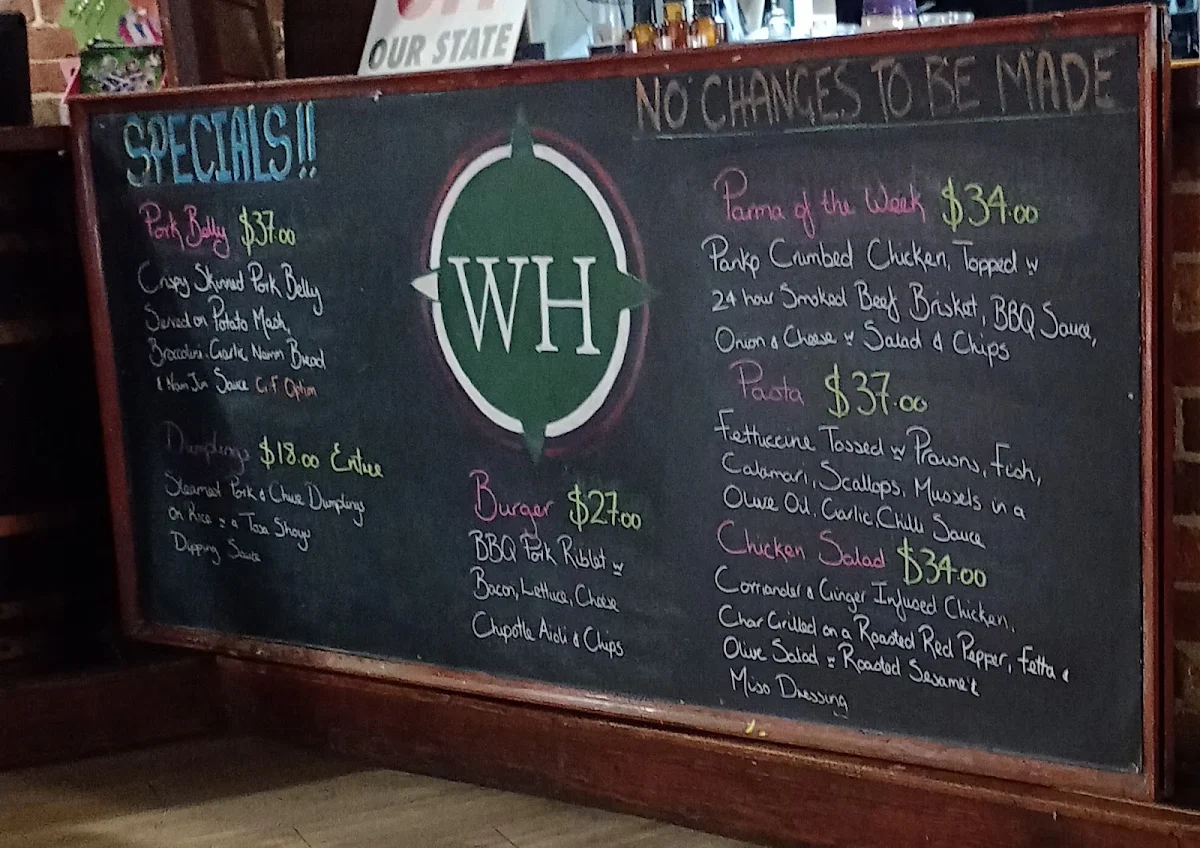 OUR STATE
SPECIALS!!
Pork Belly $37.00
Crispy Skinned Pork Belly
Served on Potato Mash,
Broccolini, Garlic Naan Bread
& Nam Jim Sauce G.F Option
Dumplings $18.00 Entree
Steamed Pork & Chive Dumplings
on Rice w a Shoyu
Dipping Sauce
WH
Burger $27.00
BBQ Pork Riblet w
Bacon, Lettuce, Cheese
Chipotle Aioli & Chips
NO CHANGES TO BE MADE
Parma of the Week $34.00
Panko Crumbed Chicken, Topped w
24 hour Smoked Beef Brisket, BBQ Sauce,
Onion & Cheese w Salad & Chips
Pasta $37.00
Fettuccine Tossed w Prawns, Fish,
Calamari, Scallops, Mussels in a
Olive Oil, Garlic, Chilli Sauce
Chicken Salad $34.00
Corriander & Ginger Infused Chicken,
Char Grilled on a Roasted Red Pepper, Fetta &
Olive Salad w Roasted Sesame &
Miso Dressing